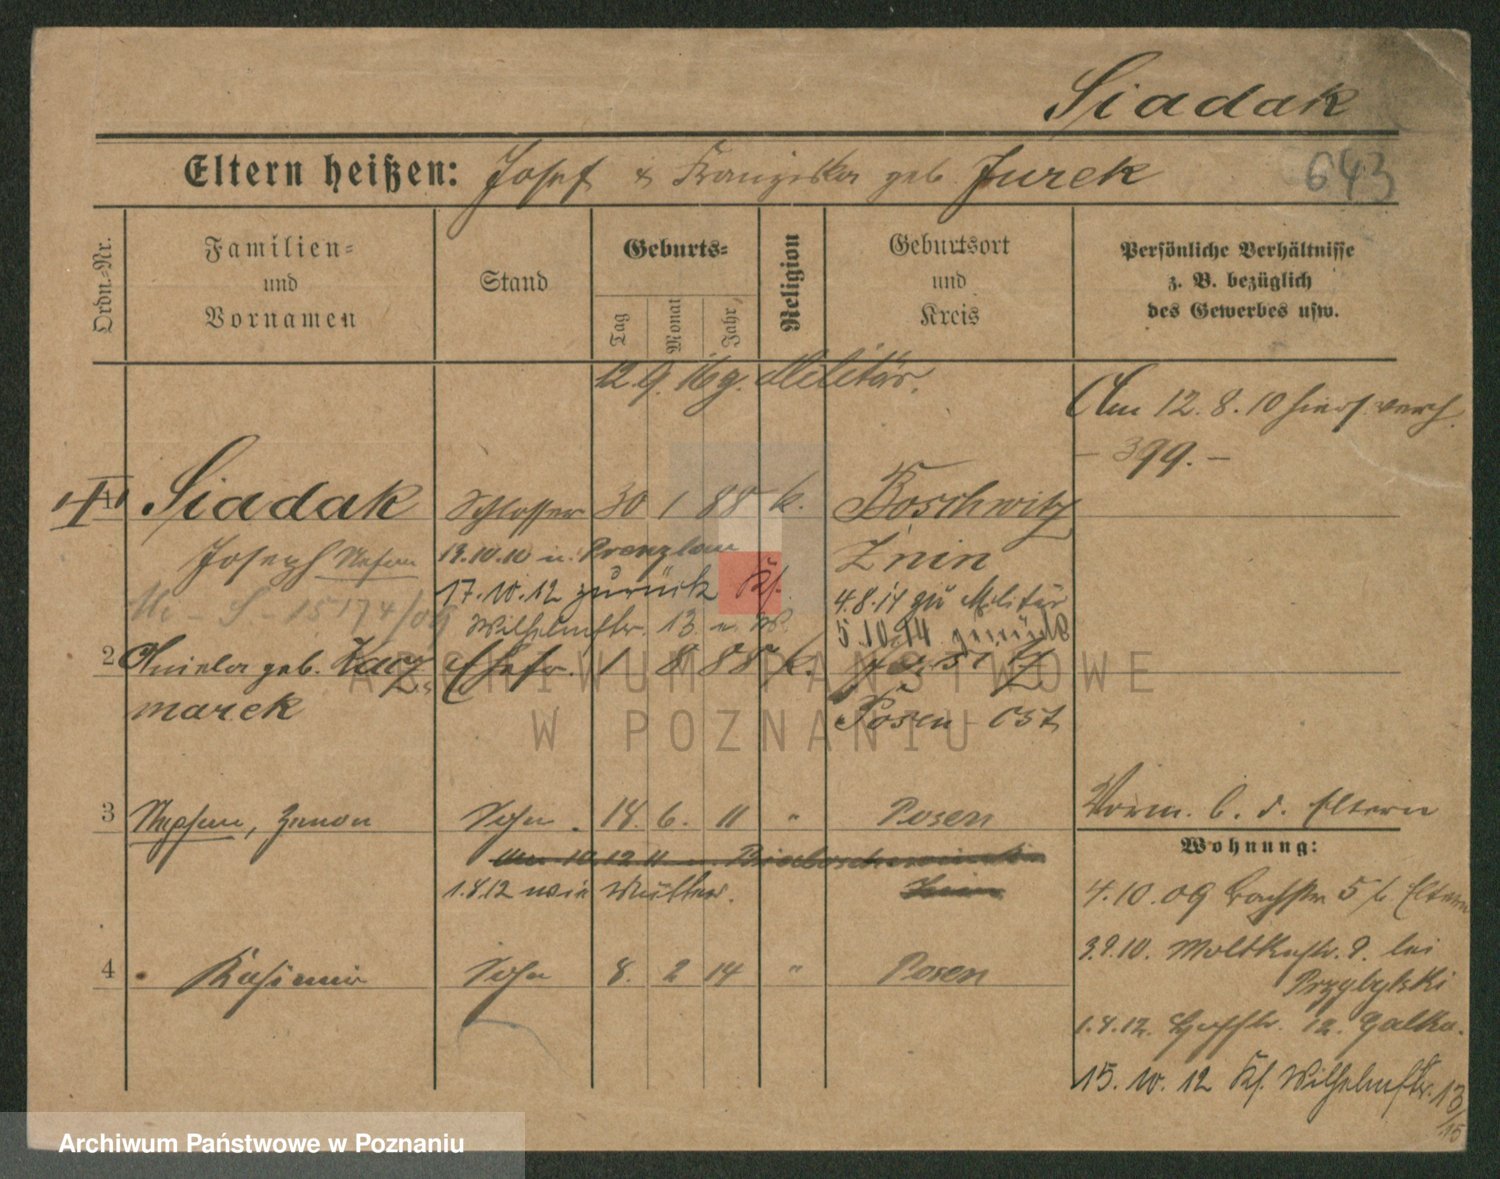 Siadak
Eltern heißen: Josef & Franziska geb Jurek
643
Ordn.-Nr.
Familien-
und
Vornamen
Stand
Geburts-
Tag
Monat
Jahr
Religion
Geburtsort
und
Kreis
Persönliche Verhältnisse
z. B. bezüglich
des Gewerbes usw.
12.9.16 g. Militär.
Am 12.8.10 hiers. verh.
- 399. -
1 Siadak Schlosser 30 1 88 k. Boschwitz
Joseph Stefan 19.10.10 n. Prenzlau Znin
17.10.12 zurück Kf. 4.8.14 zu Militär
15174/09 Wilhelmstr. 13 n. W. 5.10.14 zurück
2 Aniela geb. Kacz- Ehefr. 1 8 88 k.
marek Posen-Ost
3 Stephan, Zenon Sohn 18. 6. 11 " Posen
Vorm. b. d. Eltern
Wohnung:
1.8.12 wie Mutter.
4.10.09 Bachstr 5 b/ Eltern
3.9.10. Moltkestr. 9. bei
Przybylski
4 Kasimir Sohn 8. 2 14 " Posen
1.4.12. 12. Galka.
15.10.12 Kf. Wilhelmstr. 13
/15
ARCHIWUM PAŃSTWOWE
W POZNANIU
Archiwum Państwowe w Poznaniu